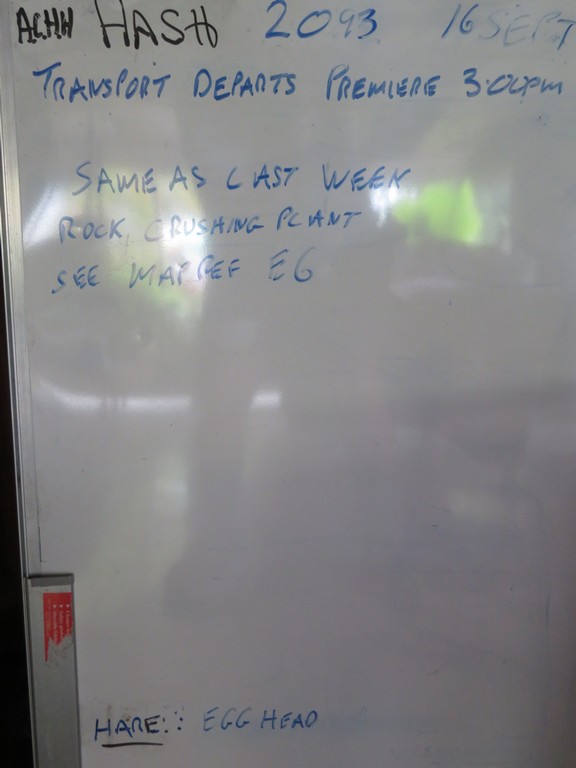 ACHH HASH 2093 16 SEPT
TRANSPORT DEPARTS PREMIERE 3.00pm
SAME AS LAST WEEK
ROCK CRUSHING PLANT
SEE MAP REF E6
HARE: EGG HEAD